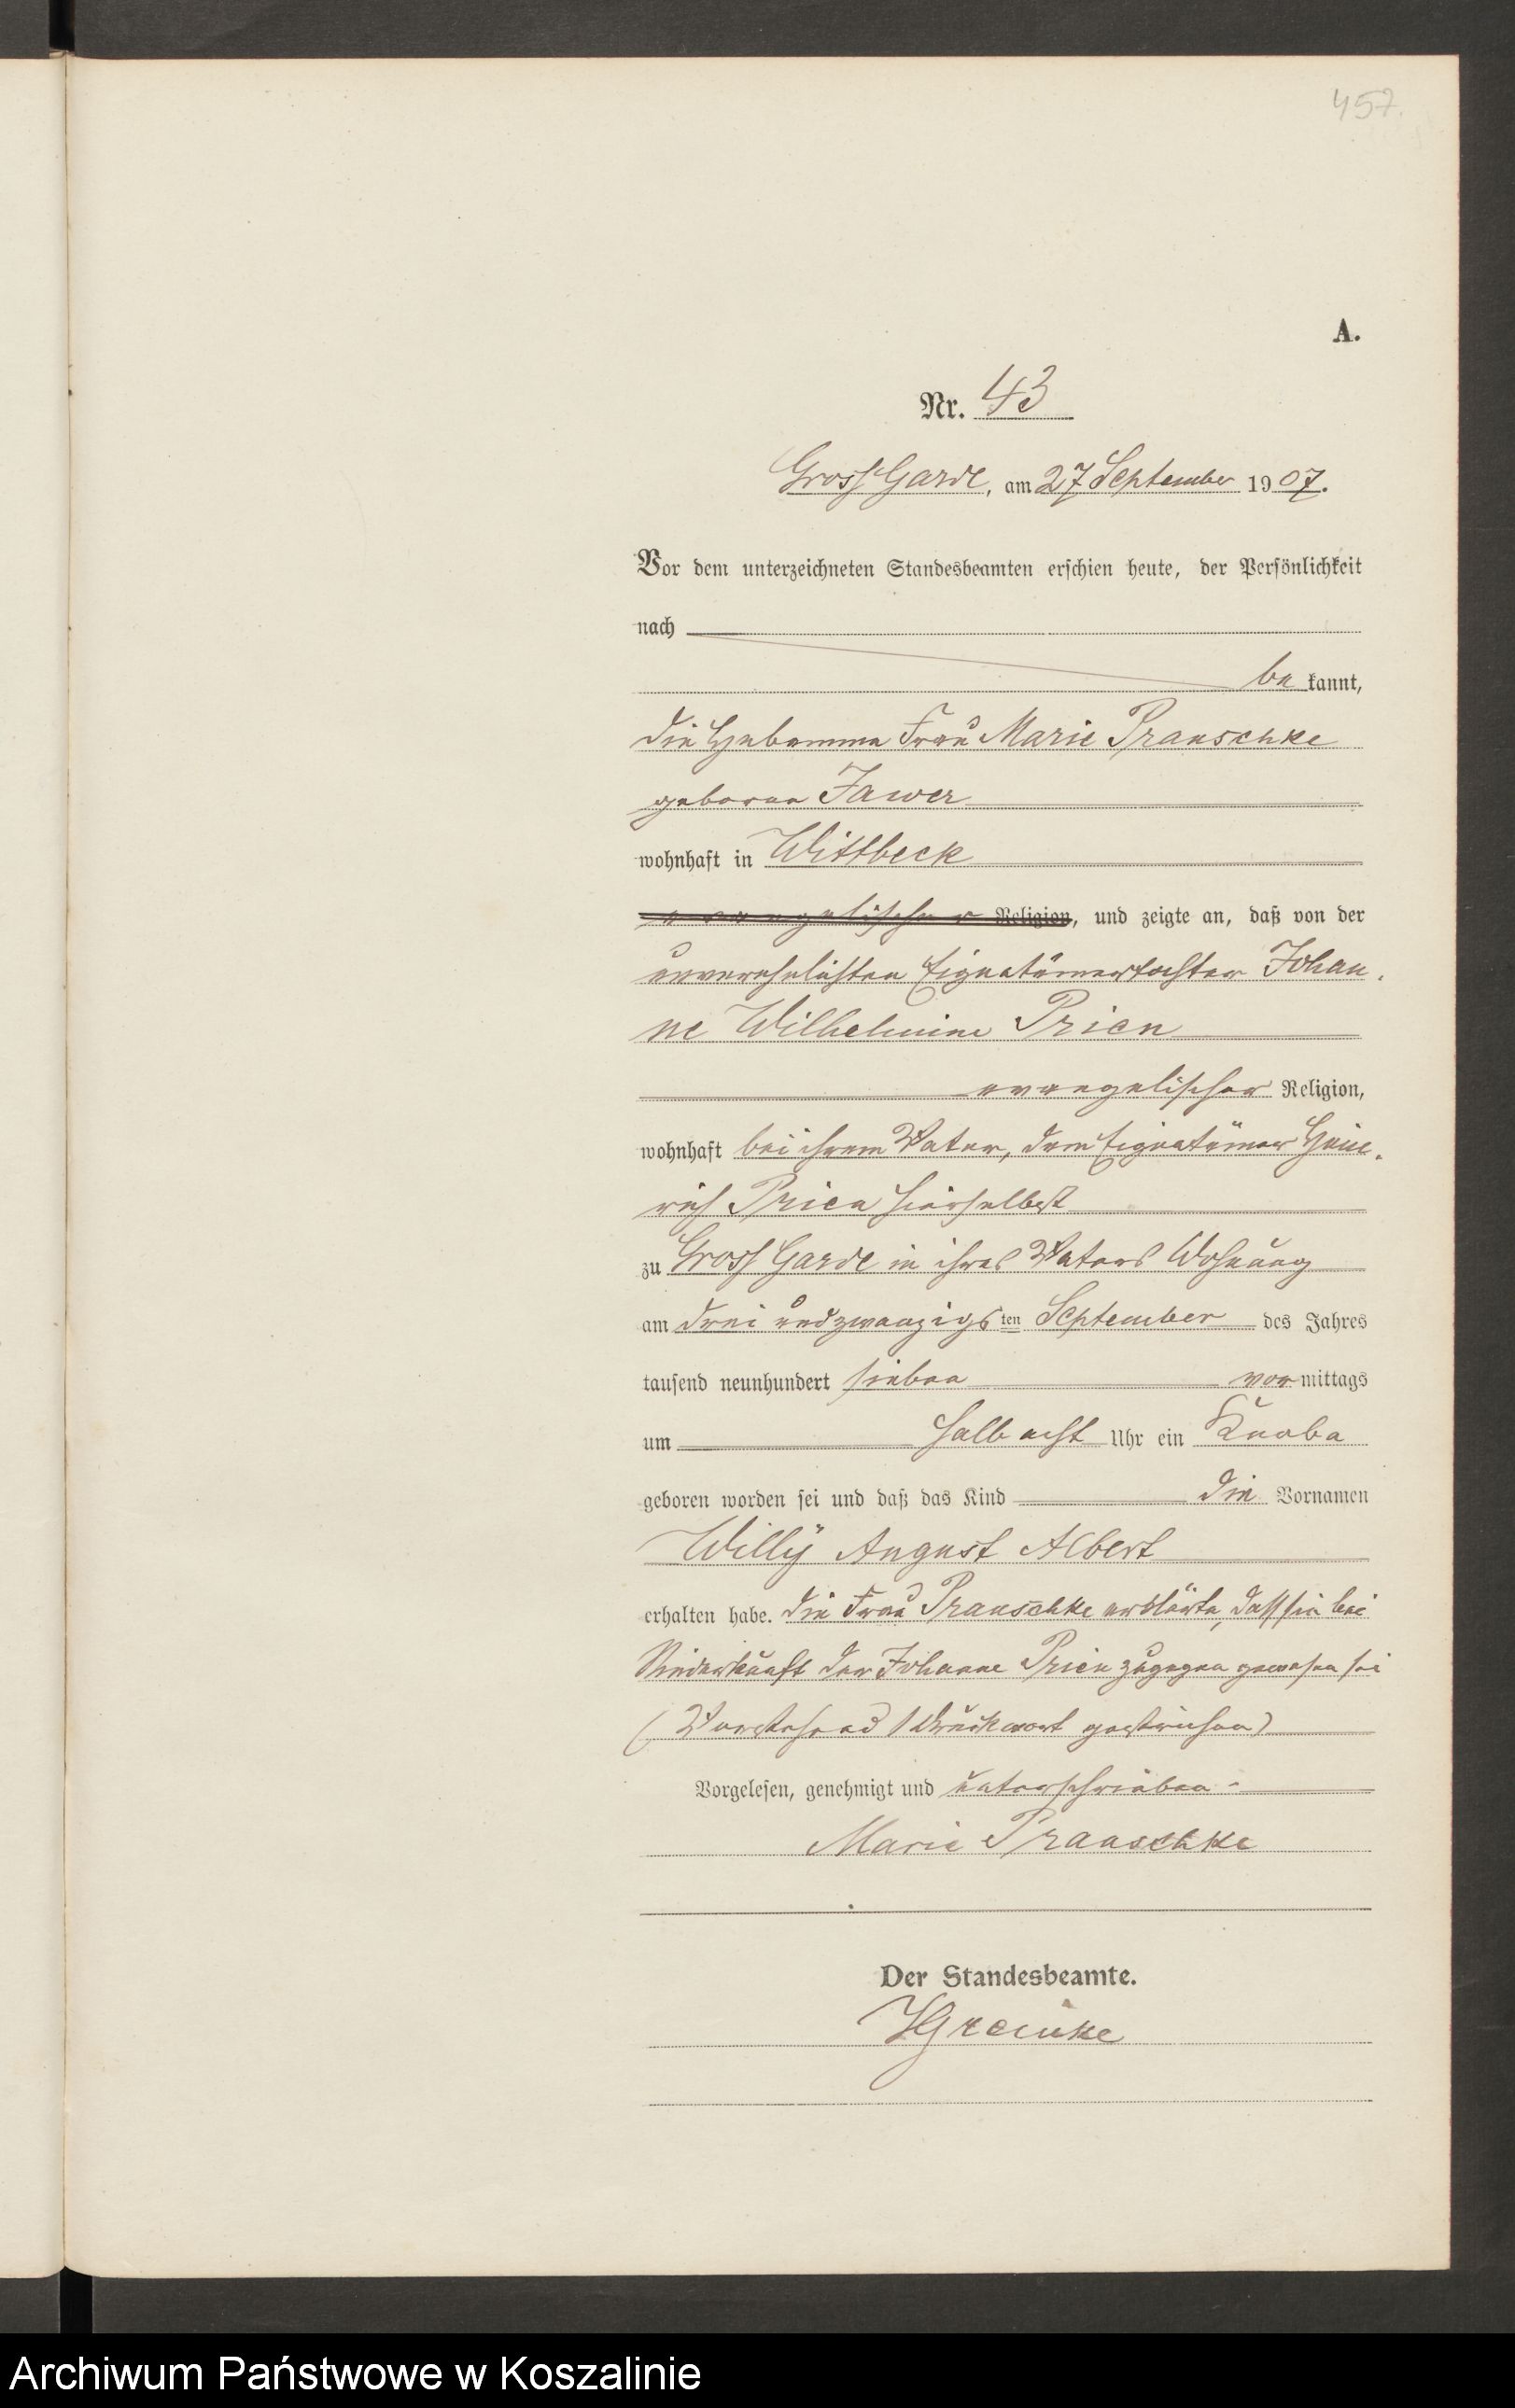 457.
A.
Nr. 43
Gross Garde, am 27 September 1907.
Vor dem unterzeichneten Standesbeamten erschien heute, der Persönlichkeit
nach
be kannt,
die Hebamme Frau Marie Pranschke
geborene Jawer
wohnhaft in Wittbeck
evangelischer Religion, und zeigte an, daß von der
unverehelichten Eigentümertochter Johan-
ne Wilhelmine Prien
evangelischer Religion,
wohnhaft bei ihrem Vater, dem Eigentümer Hein-
rich Prien hierselbst
zu Gross Garde in ihres Vaters Wohnung
am drei und zwanzigsten September des Jahres
tausend neunhundert sieben vormittags
um halb acht Uhr ein Knabe
geboren worden sei und daß das Kind die Vornamen
Willÿ August Albert
erhalten habe. Die Frau Pranschke erklärte, dass sie bei
Niederkunft der Johanne Prien zugegen gewesen sei
(Vorstehend 1 Druckwort gestrichen)
Vorgelesen, genehmigt und unterschrieben -
Marie Pranschke
Der Standesbeamte.
Greinke
Archiwum Państwowe w Koszalinie